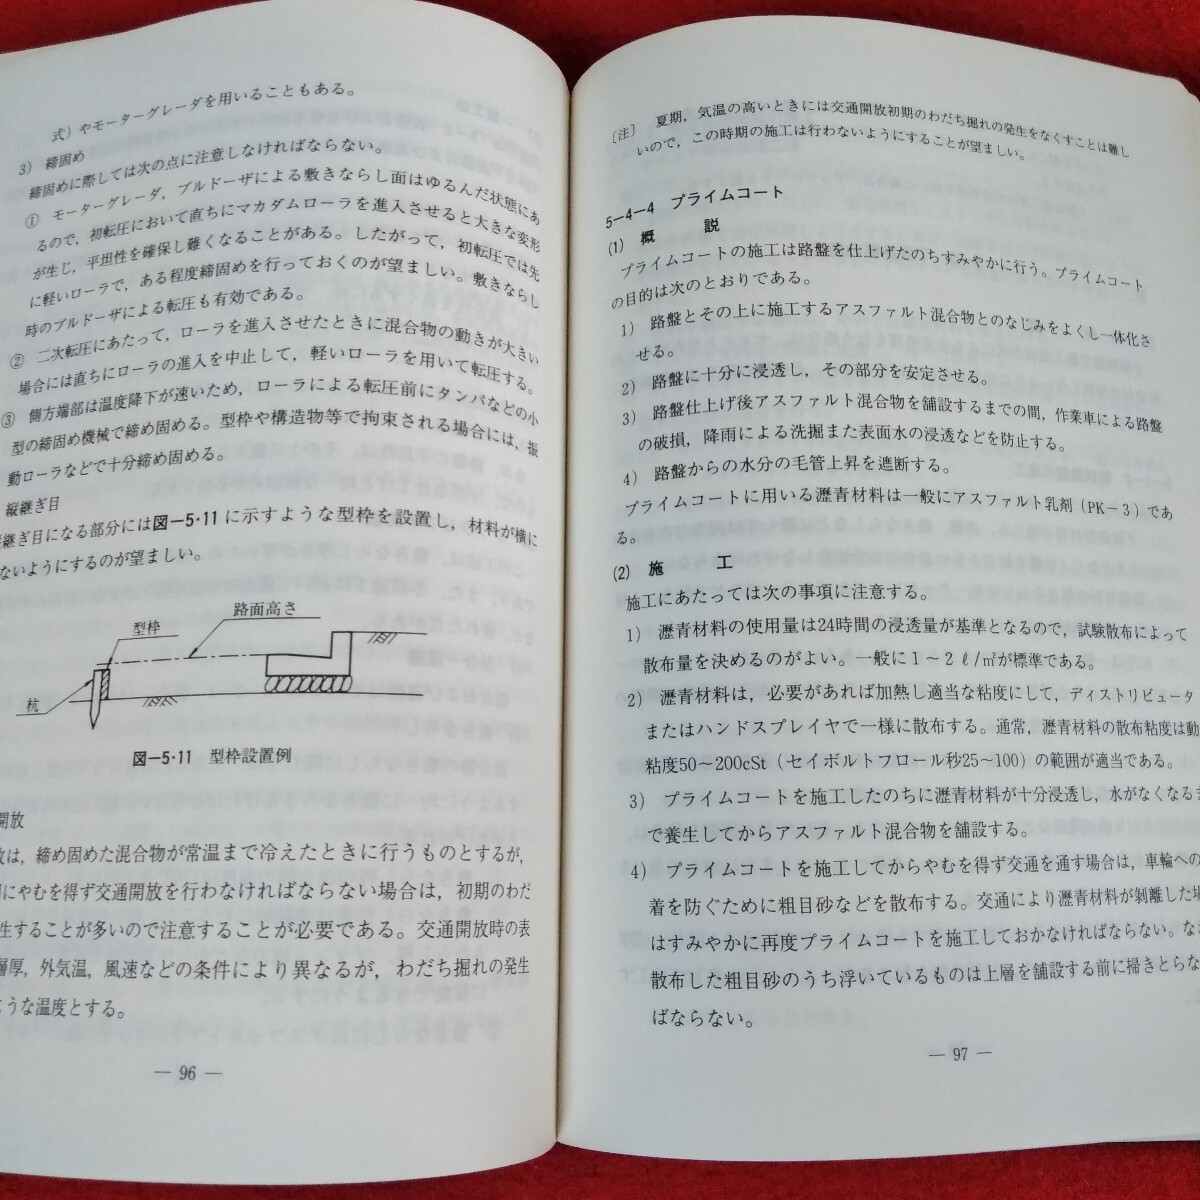 式）やモーターグレーダを用いることもある。
3） 締固め
締固めに際しては次の点に注意しなければならない。
① モーターグレーダ，ブルドーザによる敷きならし面はゆるんだ状態にあ
るので，初転圧において直ちにマカダムローラを進入させると大きな変形
が生じ，平坦性を確保し難くなることがある。したがって，初転圧では先
に軽いローラで，ある程度締固めを行っておくのが望ましい。敷きならし
時のブルドーザによる転圧も有効である。
② 二次転圧にあたって，ローラを進入させたときに混合物の動きが大きい
場合には直ちにローラの進入を中止して，軽いローラを用いて転圧する。
③ 側方端部は温度降下が速いため，ローラによる転圧前にタンパなどの小
型の締固め機械で締め固める。型枠や構造物等で拘束される場合には，振
動ローラなどで十分締め固める。
縦継ぎ目
継ぎ目になる部分には図－5・11に示すような型枠を設置し，材料が横に
ないようにするのが望ましい。
路面高さ
型枠
杭
図－5・11 型枠設置例
開放
は，締め固めた混合物が常温まで冷えたときに行うものとするが，
にやむを得ず交通開放を行わなければならない場合は，初期のわだ
生することが多いので注意することが必要である。交通開放時の表
層厚，外気温，風速などの条件により異なるが，わだち掘れの発生
うな温度とする。
― 96 ―
〔注〕 夏期，気温の高いときには交通開放初期のわだち掘れの発生をなくすことは難し
いので，この時期の施工は行わないようにすることが望ましい。
5－4－4 プライムコート
(1) 概 説
プライムコートの施工は路盤を仕上げたのちすみやかに行う。プライムコート
の目的は次のとおりである。
1） 路盤とその上に施工するアスファルト混合物とのなじみをよくし一体化さ
せる。
2） 路盤に十分に浸透し，その部分を安定させる。
3） 路盤仕上げ後アスファルト混合物を舗設するまでの間，作業車による路盤
の破損，降雨による洗掘また表面水の浸透などを防止する。
4） 路盤からの水分の毛管上昇を遮断する。
プライムコートに用いる瀝青材料は一般にアスファルト乳剤（PK－3）であ
る。
(2) 施 工
施工にあたっては次の事項に注意する。
1） 瀝青材料の使用量は24時間の浸透量が基準となるので，試験散布によって
散布量を決めるのがよい。一般に1～2ℓ/㎡が標準である。
2） 瀝青材料は，必要があれば加熱し適当な粘度にして，ディストリビュータ
またはハンドスプレイヤで一様に散布する。通常，瀝青材料の散布粘度は動
粘度50～200cSt（セイボルトフロール秒25～100）の範囲が適当である。
3） プライムコートを施工したのちに瀝青材料が十分浸透し，水がなくなるま
で養生してからアスファルト混合物を舗設する。
4） プライムコートを施工してからやむを得ず交通を通す場合は，車輪への
着を防ぐために粗目砂などを散布する。交通により瀝青材料が剥離した場
はすみやかに再度プライムコートを施工しておかなければならない。なお
散布した粗目砂のうち浮いているものは上層を舗設する前に掃きとらな
ばならない。
― 97 ―